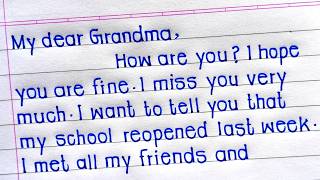 My dear Grandma,
How are you? I hope
you are fine. I miss you very
much. I want to tell you that
my school reopened last week.
I met all my friends and